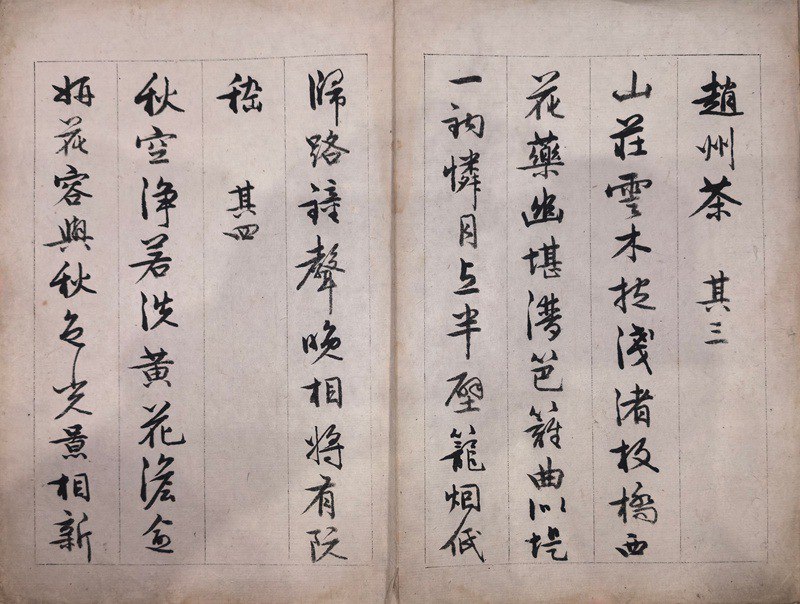 趙州茶 其三
山莊雲木抆淺渚板橋西
花藥幽堪潛笆籬曲似堤
一鉤憐月上半壁籠烟低
歸路鐘聲晚相將有阮
嵇 其四
秋空淨若洗黃花澹愈
妍花容與秋色光景相新